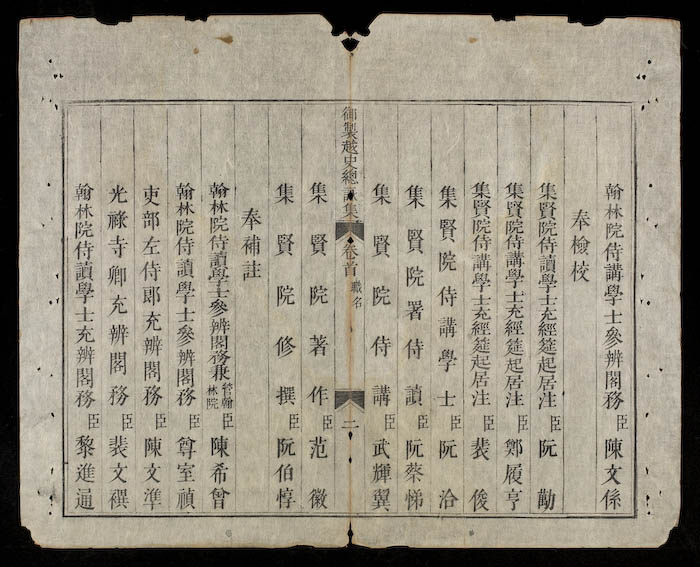 翰林院侍講學士參辨閣務臣陳文係
奉檢校
集賢院侍讀學士充經筵起居注臣阮勸
集賢院侍講學士充經筵起居注臣鄭履亨
集賢院侍講學士充經筵起居注臣裴俊
集賢院侍講學士臣阮洽
集賢院署侍讀臣阮蔡悌
集賢院侍講臣武輝翼
御製越史總詠集 卷首 職名 二
集賢院著作臣范徽
集賢院修撰臣阮伯惇
奉補註
翰林院侍讀學士參辨閣務兼管翰林院臣陳希曾
翰林院侍讀學士參辨閣務臣尊室禎
吏部左侍郎充辨閣務臣陳文準
光祿寺卿充辨閣務臣裴文禩
翰林院侍讀學士充辨閣務臣黎進通